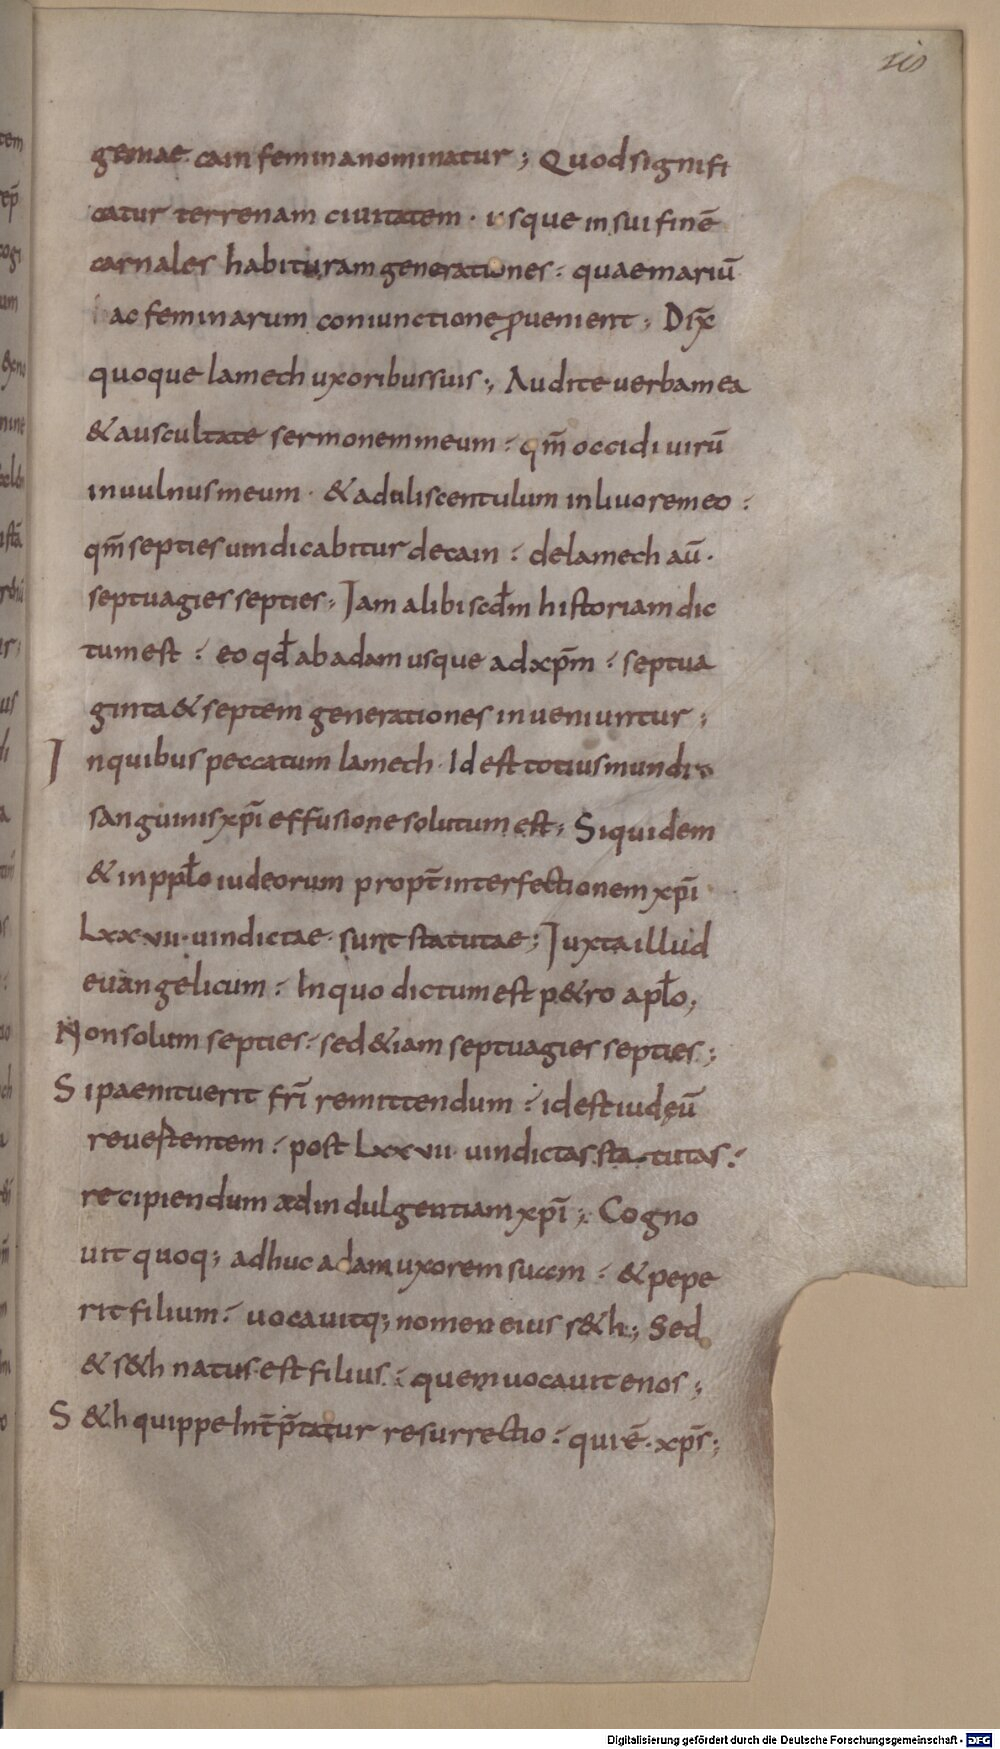 genae cain femina nominatur; Quod signifi
catur terrenam ciuitatem · usque in sui finē
carnales habituram generationes: quae mariū
ac feminarum coniunctione ꝓuenient; Dix̄
quoque lamech uxoribus suis; Audite uerba mea
& auscultate sermonem meum: qm̄ occidi uirū
in uulnus meum · & aduliscentulum in liuore meo:
qm̄ septies uindicabitur de cain: de lamech aū·
septuagies septies; Iam alibi scd̄m historiam dic
tum est: eo qd̄ ab adam usque ad xp̄m: septua
ginta & septem generationes inueniuntur;
In quibus peccatum lamech · Id est totius mundi
sanguinis xp̄i effusione solutum est; Siquidem
& in ppl̄o iudeorum propt̄ interfectionem xp̄i
Lxxvii· uindictae· sunt statutae; Iuxta illud
euangelicum: In quo dictum est p&ro apl̄o;
Non solum septies: sed &iam septuagies septies;
Si paenituerit fr̄i remittendum: id est iudeū
reuertentem: post Lxxvii· uindictas statutas:
recipiendum ad indulgentiam xp̄i; Cogno
uit quoq; adhuc adam uxorem suam: & pepe
rit filium: uocauitq; nomen eius s&h; Sed
& s&h natus est filius: quem uocauit enos;
S&h quippe Int̄p̄tatur resurrectio: qui ē· xp̄s;
Digitalisierung gefördert durch die Deutsche Forschungsgemeinschaft - DFG